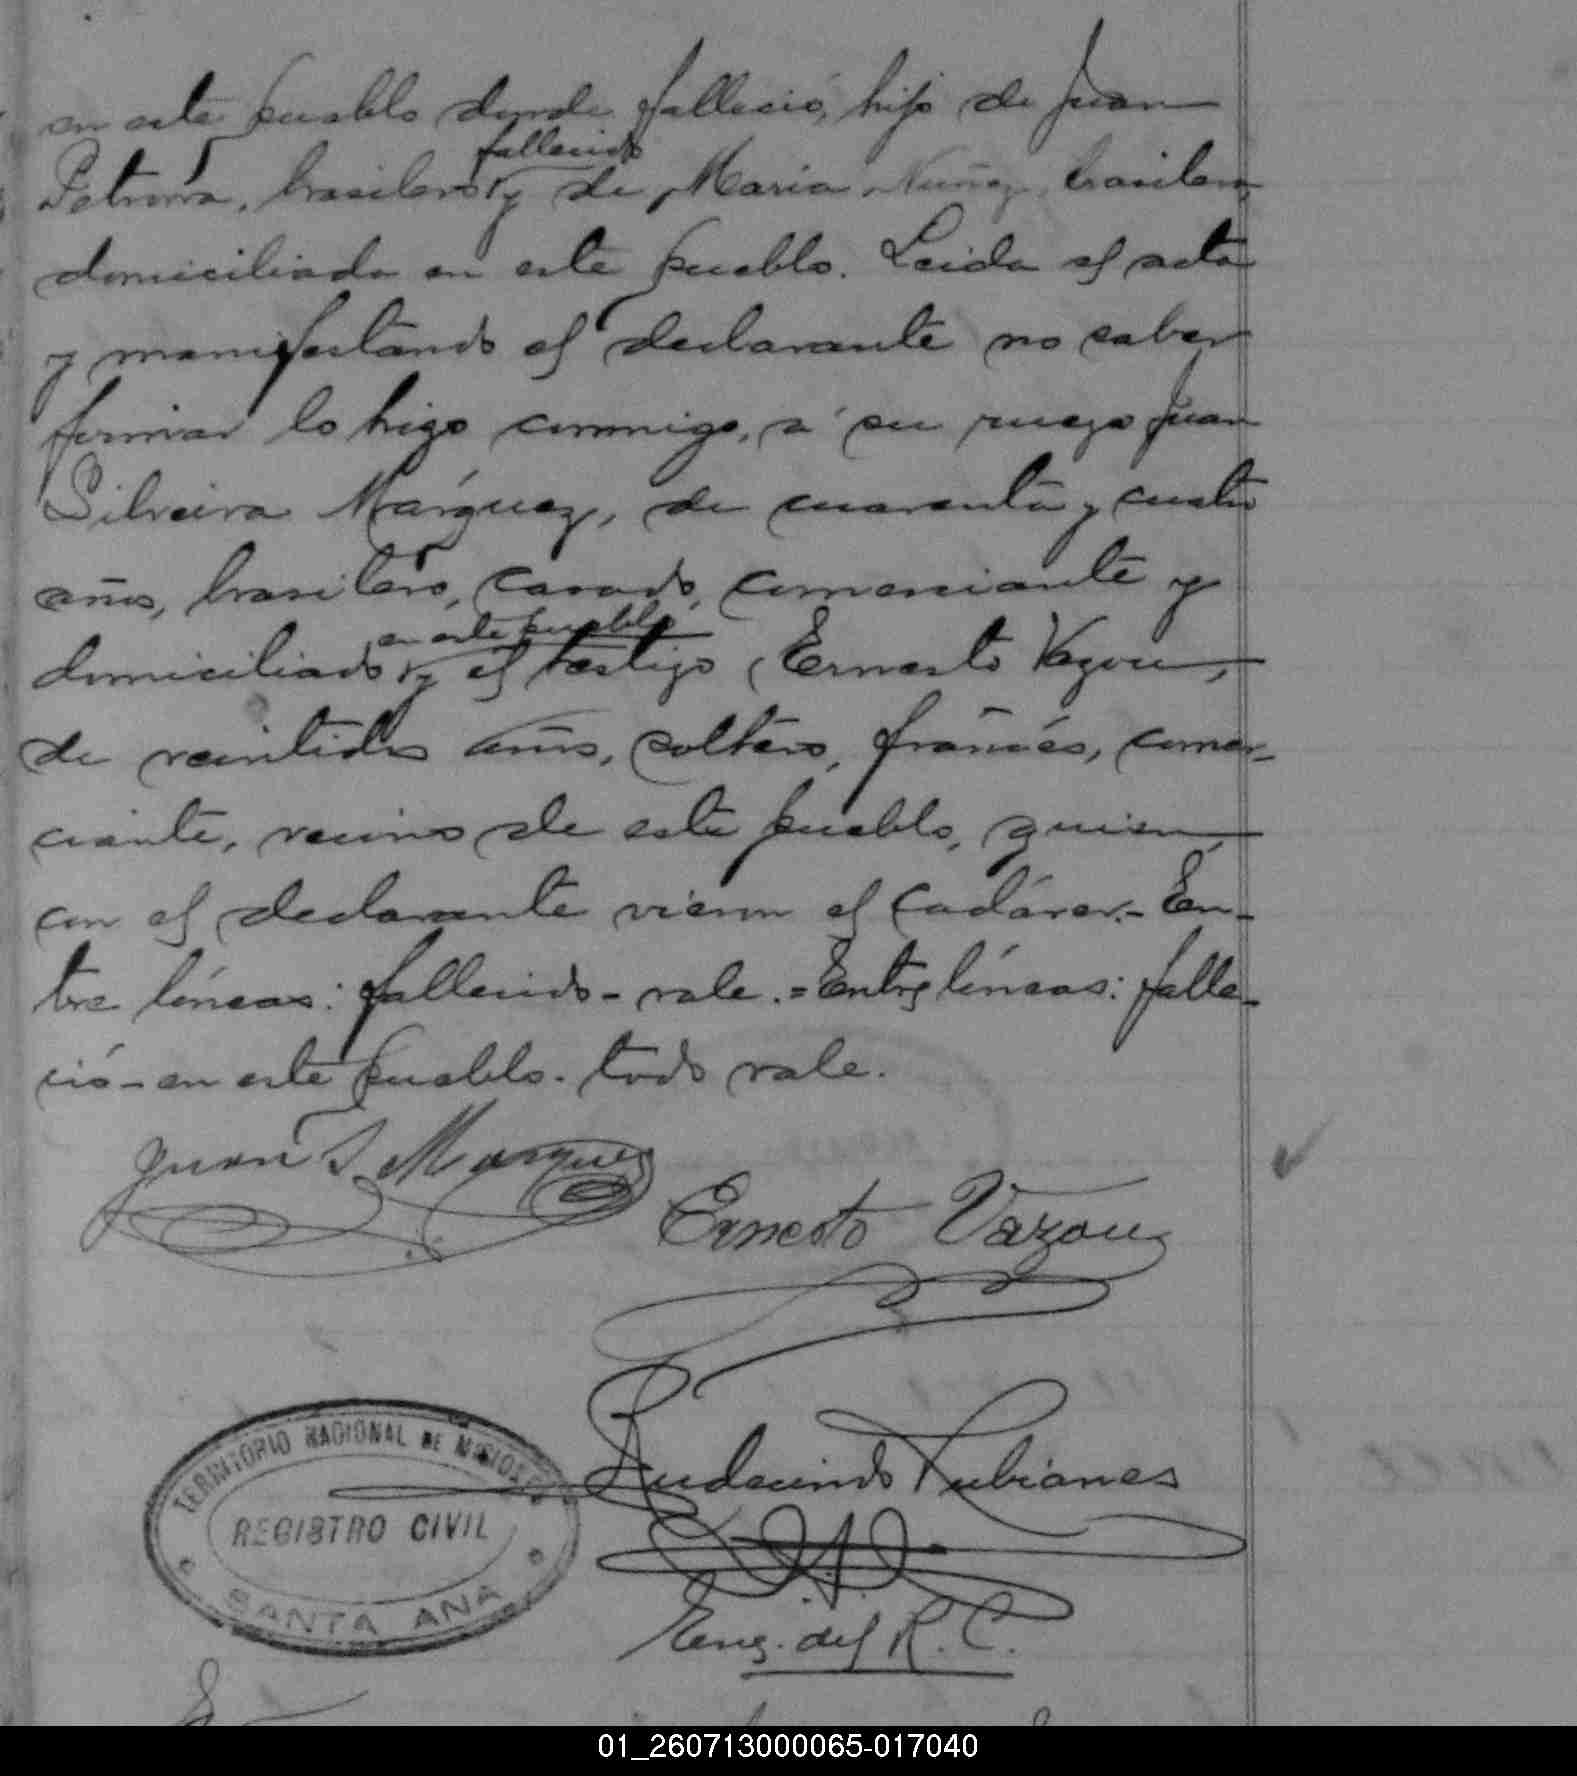 en este pueblo donde falleció, hijo de Juan
fallecido
Petrona, brasilero y de Maria Nuñez, brasilera,
domiciliada en este pueblo. Leida el acta
y manifestando el declarante no saber
firmar lo hizo conmigo, á su ruego Juan
Silveira Márquez, de cuarenta y cuatro
años, brasilero, casado, comerciante y
en este pueblo
domiciliado y el testigo Ernesto Vazou,
de veintidos años, soltero, francés, comer-
ciante, vecino de este pueblo, quien
con el declarante vieron el cadáver.- En-
tre líneas: fallecido - vale.=Entre líneas: falle-
ció - en este pueblo. todo vale.
Juan S. Marquez
Ernesto Vazou
Rudecindo Rubianes
TERRITORIO NACIONAL DE MISIONES
REGISTRO CIVIL
SANTA ANA
Enc. del R. C.
01_260713000065-017040